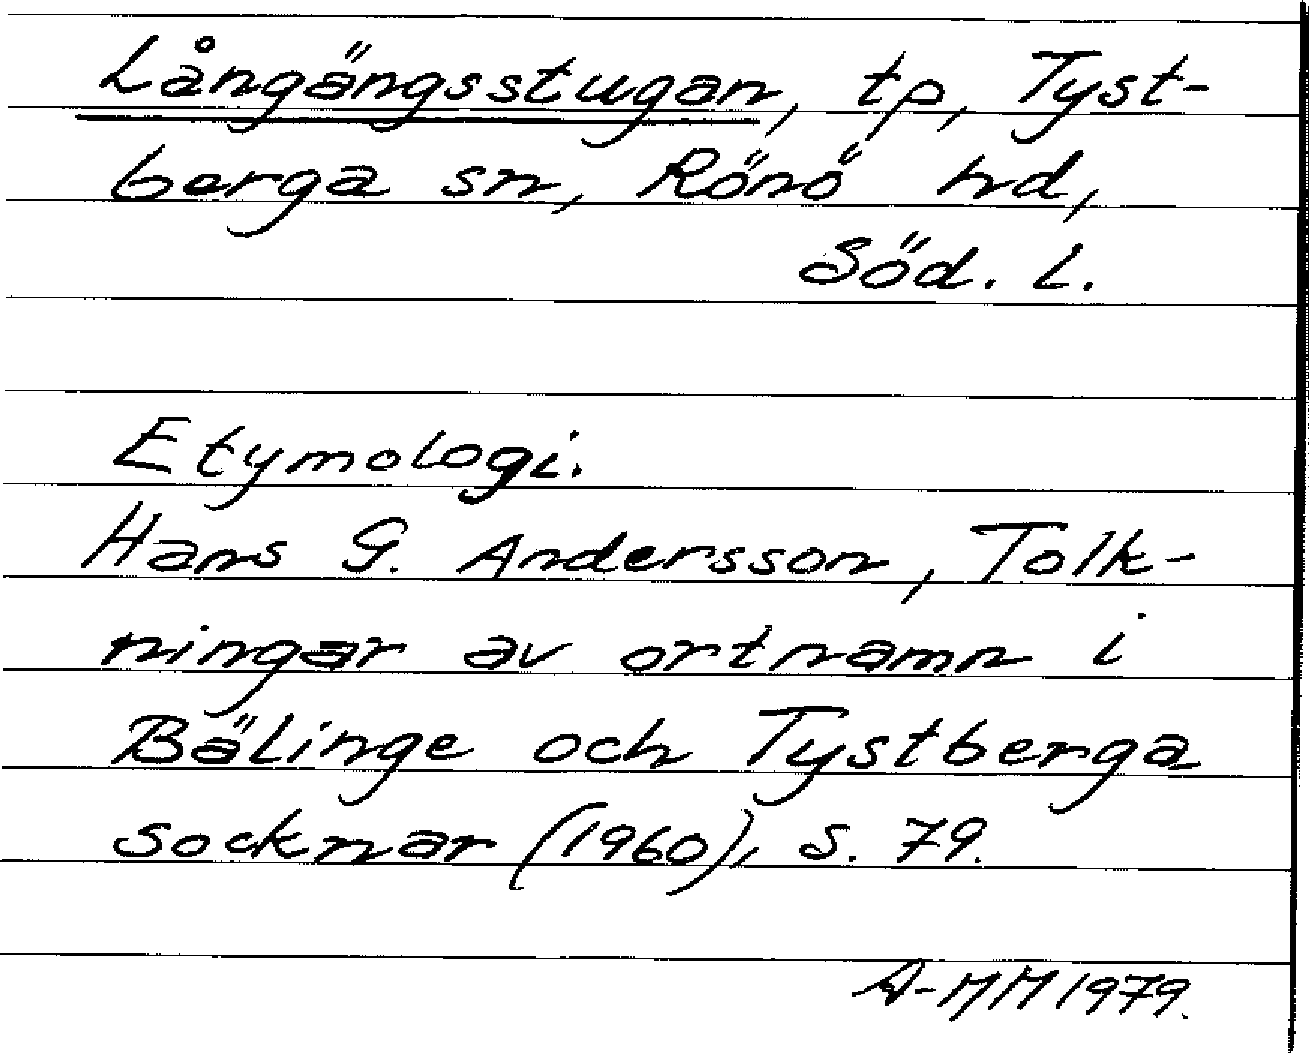 Långängsstugan, tp, Tyst-
berga sn, Rönö hd,
Söd. l.
Etymologi.
Hans G. Andersson, Tolk-
ningar av ortnamn i
Bälinge och Tystberga
socknar (1960), s. 79.
A-MM 1979.